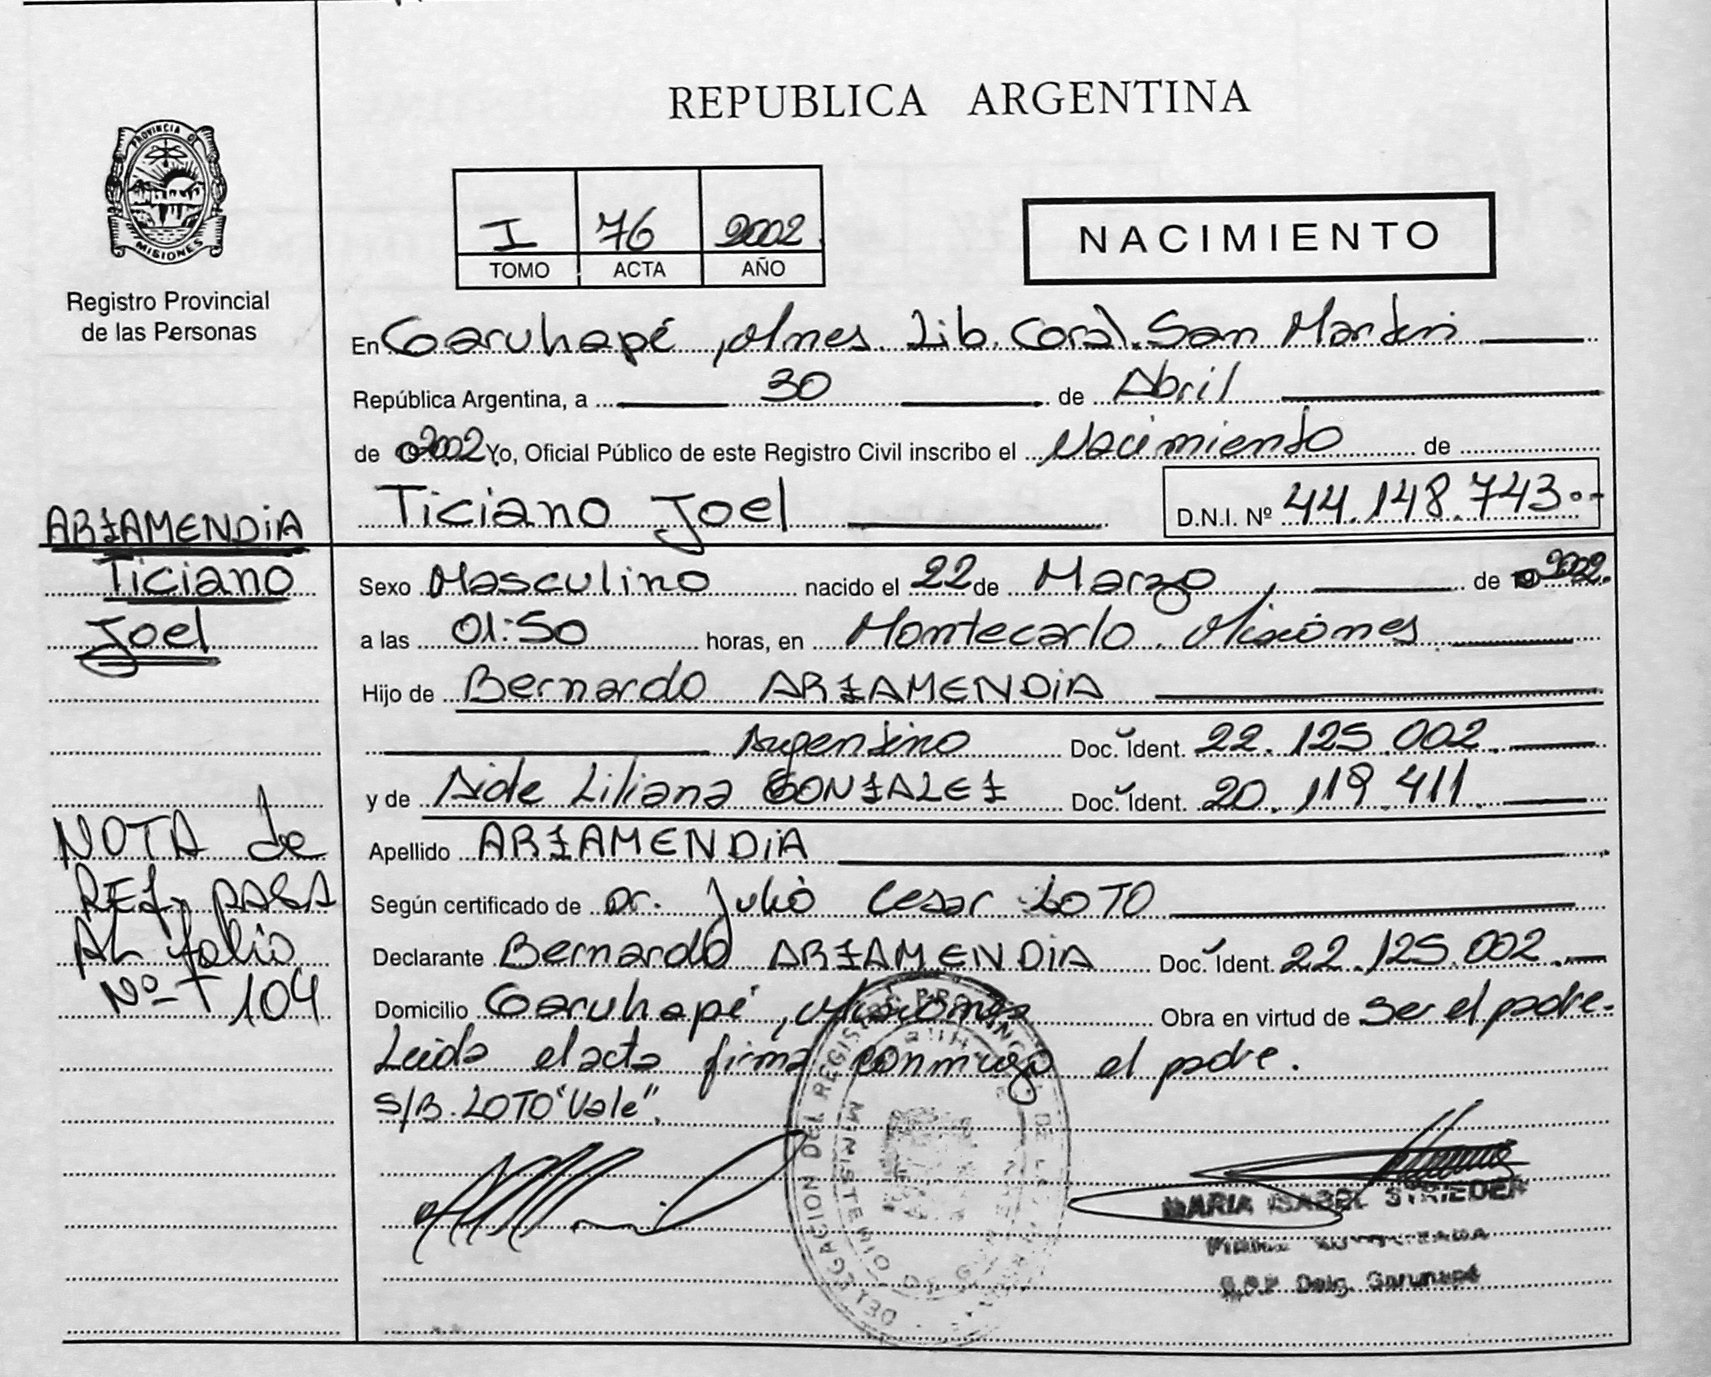 REPUBLICA ARGENTINA
PROVINCIA DE
MISIONES
Registro Provincial
de las Personas
I 76 2002
TOMO ACTA AÑO
NACIMIENTO
En Garuhapé, Mnes. Lib. Gral. San Martin
República Argentina, a 30 de Abril
de 2002 Yo, Oficial Público de este Registro Civil inscribo el Nacimiento de
Ticiano Joel
D.N.I. Nº 44.148.743.-
ARZAMENDiA
Ticiano
Joel
Sexo Masculino nacido el 22 de Marzo, de 2002.
a las 01:50 horas, en Montecarlo. Misiones
Hijo de Bernardo ARZAMENDiA
Argentino Doc. Ident. 22.125.002.
y de Aide Liliana GONZALEZ Doc. Ident. 20.119.411.
Apellido ARZAMENDiA
Según certificado de Dr. Julio Cesar LOTO
Declarante Bernardo ARZAMENDiA Doc. Ident. 22.125.002.
Domicilio Garuhapé, Misiones Obra en virtud de ser el padre.
Leida el acta firma conmigo el padre.
S/B. LOTO "Vale".
NOTA de
REF. PASA
AL folio
Nº 104
DELEGACION DEL REGISTRO PROVINCIAL DE LAS
MINISTERIO DE
MARIA ISABEL STRIEDER
FIRMA AUTORIZADA
Delg. Garuhapé